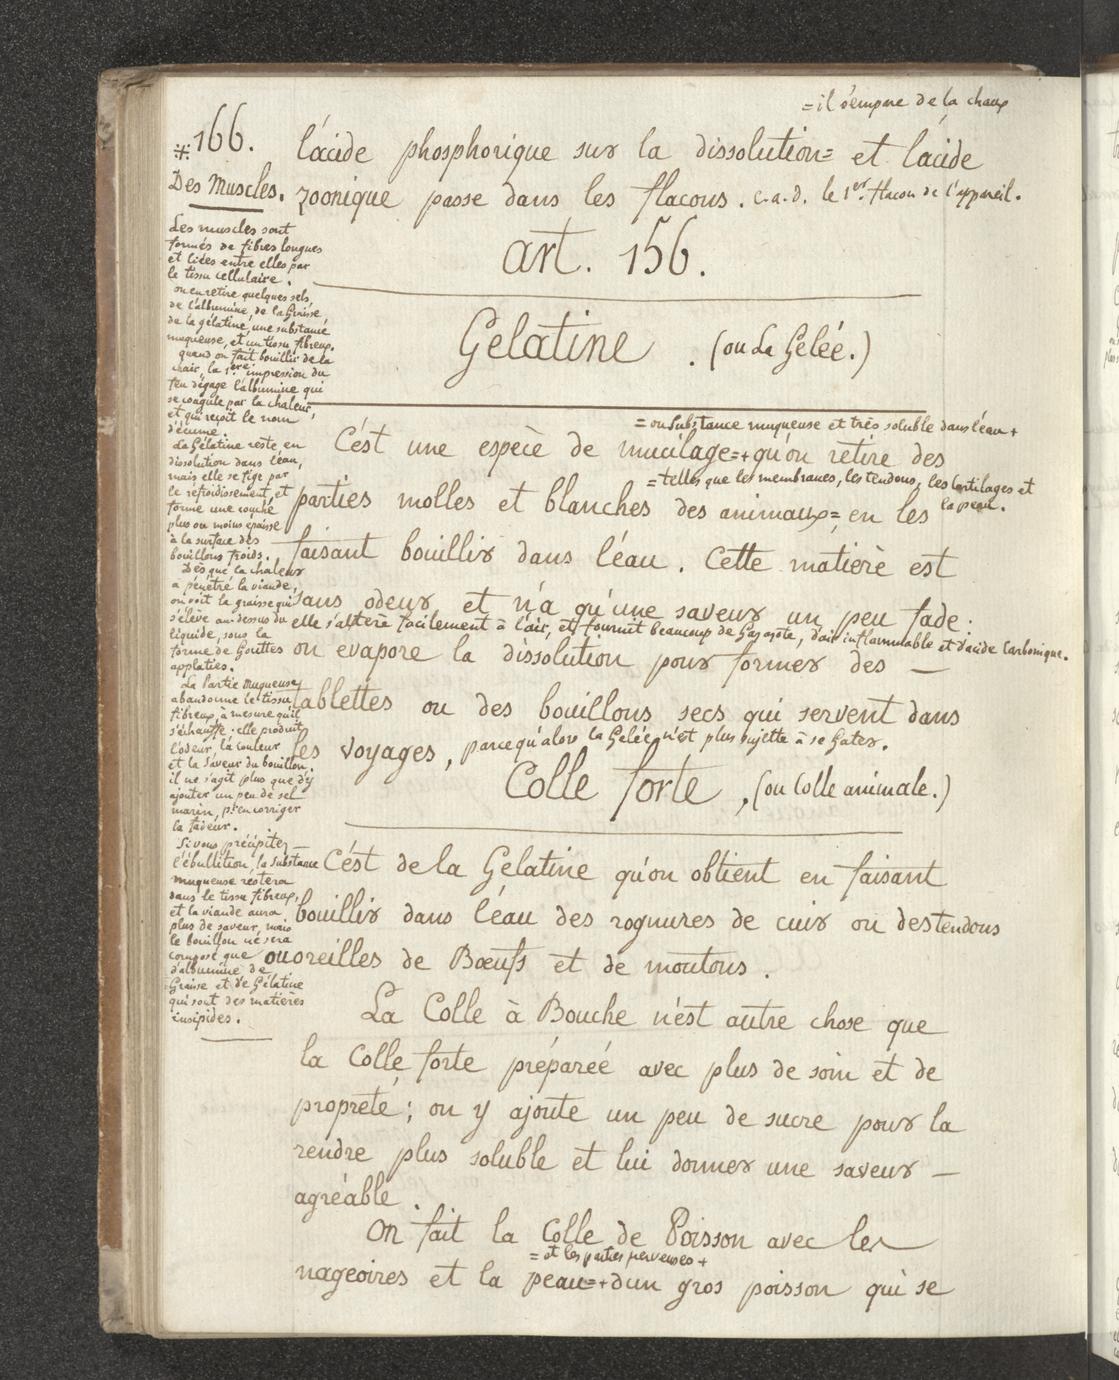 =il s'empare de la chaux
⁜166.
l'acide phosphorique sur la dissolution= et l'acide
zoonique passe dans les flacons. c.a.d. le 1er. flacon de l'appareil.
art. 156.
Gelatine . (ou La Gélée.)
=ou substance muqueuse et très soluble dans l'eau+
C'est une espèce de mucilage=+qu'on retire des
=telles que les membranes, les tendons, les Cartilages et
la peau.
parties molles et blanches des animaux=, en les
faisant bouillir dans l'eau. Cette matière est
sans odeur, et n'a qu'une saveur un peu fade.
elle s'altère facilement à l'air, et fournit beaucoup de Gaz azote, d'air inflammable et d'acide Carbonique.
on evapore la dissolution pour former des —
tablettes ou des bouillons secs qui servent dans
les voyages, parcequ'alors la Gelée n'est plus sujette à se Gater.
Colle forte, (ou Colle animale.)
C'est de la Gelatine qu'on obtient en faisant
bouillir dans l'eau des rognures de cuir ou des tendons
ou oreilles de Bœufs et de moutons.
La Colle à Bouche n'est autre chose que
la Colle forte préparée avec plus de soin et de
propreté; on y ajoute un peu de sucre pour la
rendre plus soluble et lui donner une saveur —
agréable.
On fait la Colle de Poisson avec les
=et les parties nerveuses+
nageoires et la peau=+d'un gros poisson qui se
Des Muscles.
Les muscles sont
formés de fibres longues
et liées entre elles par
le tissu cellulaire.
on en retire quelques sels,
de l'albumine, de la Graisse,
de la gélatine, une substance
muqueuse, et un tissu fibreux.
quand on fait bouillir de la
chair, la 1ere. impression du
feu dégage l'albumine qui
se coagule par la chaleur,
et qui reçoit le nom
d'écume.
La Gélatine reste, en
dissolution dans l'eau,
mais elle se fige par
le refroidissement, et
forme une couche
plus ou moins epaisse
à la surface des
bouillons froids.
Dès que la chaleur
a pénétré la viande,
on voit la graisse qui
s'élève au-dessus du
liquide, sous la
forme de Gouttes
applaties.
La Partie Muqueuse
abandonne le tissu
fibreux, à mesure qu'il
s'échauffe: elle produit
l'odeur, la couleur
et la Saveur du bouillon.
il ne s'agit plus que d'y
ajouter un peu de sel
marin, pr. en corriger
la fadeur.
Si vous précipitez
l'ébullition, la substance
muqueuse restera
dans le tissu fibreux,
et la viande aura
plus de saveur, mais
le bouillon ne sera
composé que
d'albumine de
Graisse et de Gélatine
qui sont des matières
insipides.